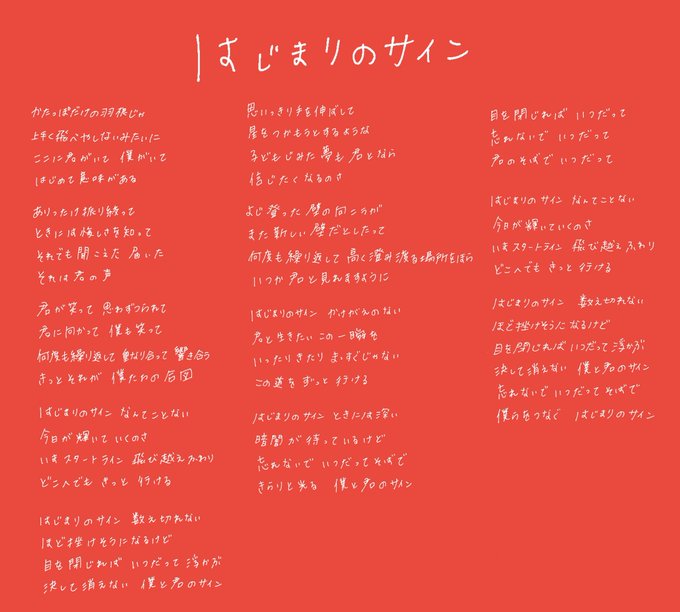 はじまりのサイン
かたっぽだけの羽根じゃ
上手く飛べやしないみたいに
ここに君がいて 僕がいて
はじめて意味がある
ありったけ振り絞って
ときには悔しさを知って
それでも聞こえた 届いた
それは君の声
君が笑って 思わずつられて
君に向かって 僕も笑って
何度も繰り返して 重なり合って 響き合う
きっとそれが 僕たちの合図
はじまりのサイン なんてことない
今日が輝いていくのさ
いまスタートライン 飛び越えふわり
どこへでも きっと 行ける
はじまりのサイン 数え切れない
ほど挫けそうになるけど
目を閉じれば いつだって 浮かぶ
決して消えない 僕と君のサイン
思いっきり手を伸ばして
星をつかもうとするような
子どもじみた夢も 君となら
信じたくなるのさ
よじ登った 壁の向こうが
また新しい 壁だとしたって
何度も繰り返して 高く澄み渡る場所をほら
いつか君と見れますように
はじまりのサイン かけがえのない
君と生きたい この一瞬を
いったりきたり まっすぐじゃない
この道を ずっと 行ける
はじまりのサイン ときには深い
暗闇が待っているけど
忘れないで いつだってそばで
きらりと光る 僕と君のサイン
目を閉じれば いつだって
忘れないで いつだって
君のそばで いつだって
はじまりのサイン なんてことない
今日が輝いていくのさ
いまスタートライン 飛び越えふわり
どこへでも きっと 行ける
はじまりのサイン 数え切れない
ほど挫けそうになるけど
目を閉じれば いつだって浮かぶ
決して消えない 僕と君のサイン
忘れないで いつだってそばで
僕らをつなぐ はじまりのサイン